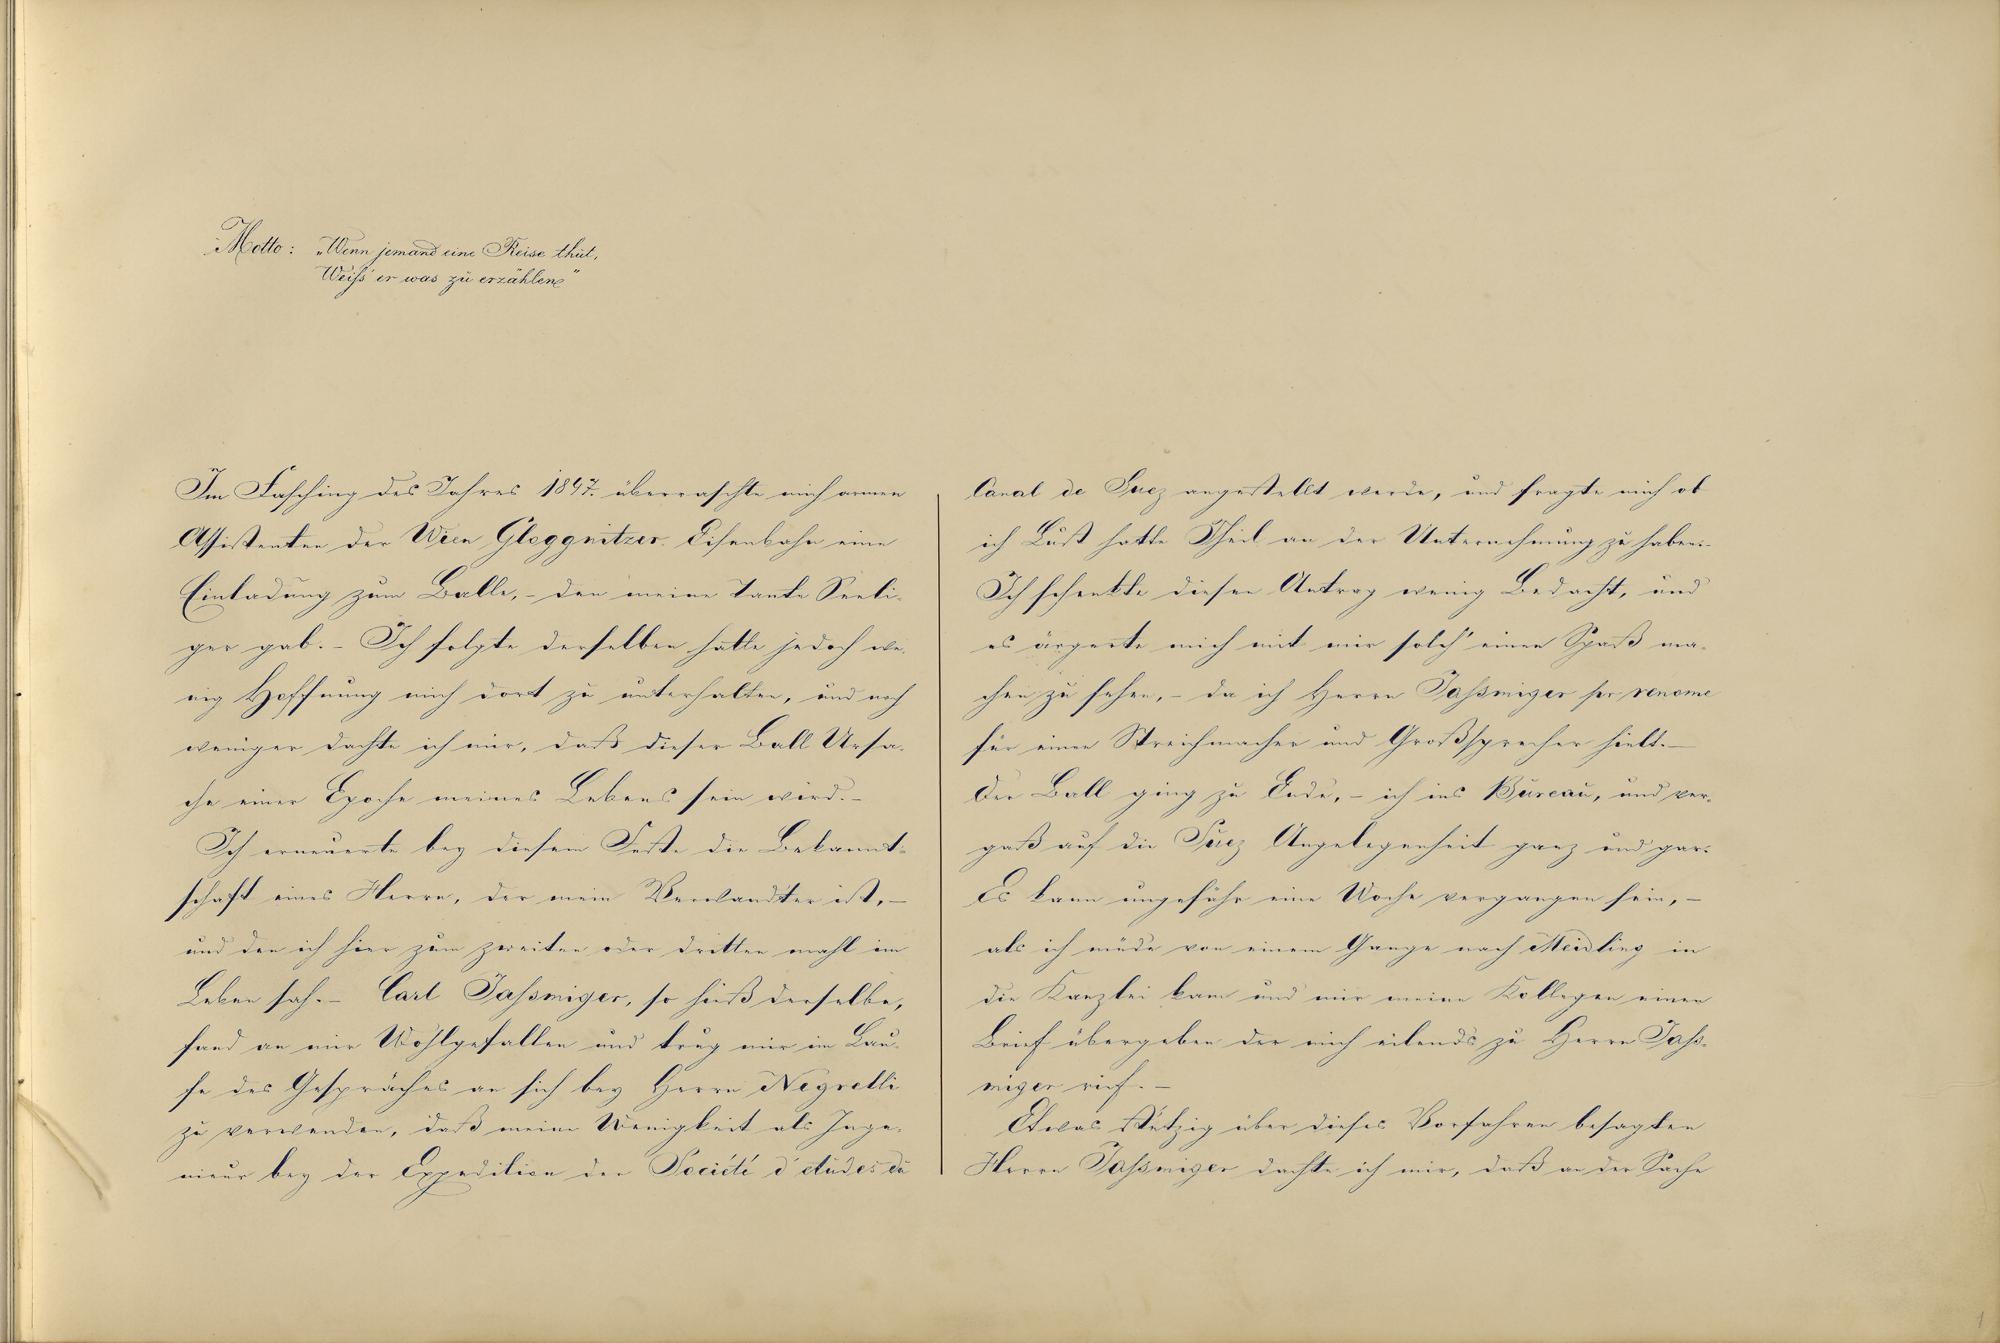 Motto: „Wenn jemand eine Reise thut,
Weiss er was zu erzählen"
Im Fasching des Jahres 1847. überraschte mich armen
Assistenten der Wien Gloggnitzer. Eisenbahn eine
Einladung zum Balle, – den meine Tante Seeli-
ger gab. – Ich folgte derselben hatte jedoch we-
nig Hoffnung mich dort zu unterhalten, und noch
weniger dachte ich mir, daß dieser Ball Ursa-
che einer Epoche meines Lebens sein wird. –
Ich erneuerte bey diesem Feste die Bekannt-
schaft eines Herrn, der mein Verwandter ist, –
und den ich hier zum zweiten oder dritten mahl im
Leben sah. – Carl Jaßmiger, so hieß derselbe,
fand an mir Wohlgefallen und trug mir im Lau-
fe des Gespräches an sich bey Herrn Negrelli
zu verwenden, daß meine Wenigkeit als Inge-
nieur bey der Expedition der Société d'etudes du
Canal de Suez angestellt werde, und fragte mich ob
ich Lust hatte Theil an der Unternehmung zu haben. –
Ich schenkte diesen Antrag wenig Bedacht, und
es ärgerte mich mit mir solch' einen Spaß ma-
chen zu sehen, – da ich Herrn Jaßmiger per renome
für einen Streichmacher und Großsprecher hielt. –
Der Ball ging zu Ende, – ich ins Bureau, und ver-
gaß auf die Suez Angelegenheit ganz und gar. –
Es kann ungefähr eine Woche vergangen sein, –
als ich müde von einem Gange nach Meidling in
die Kanzlei kam und mir meine Kollegen einen
Brief übergeben der mich eilends zu Herrn Jaß-
miger rief. –
Etwas stutzig über dieses Vorfahren besagten
Herrn Jaßmiger dachte ich mir, daß an der Sache